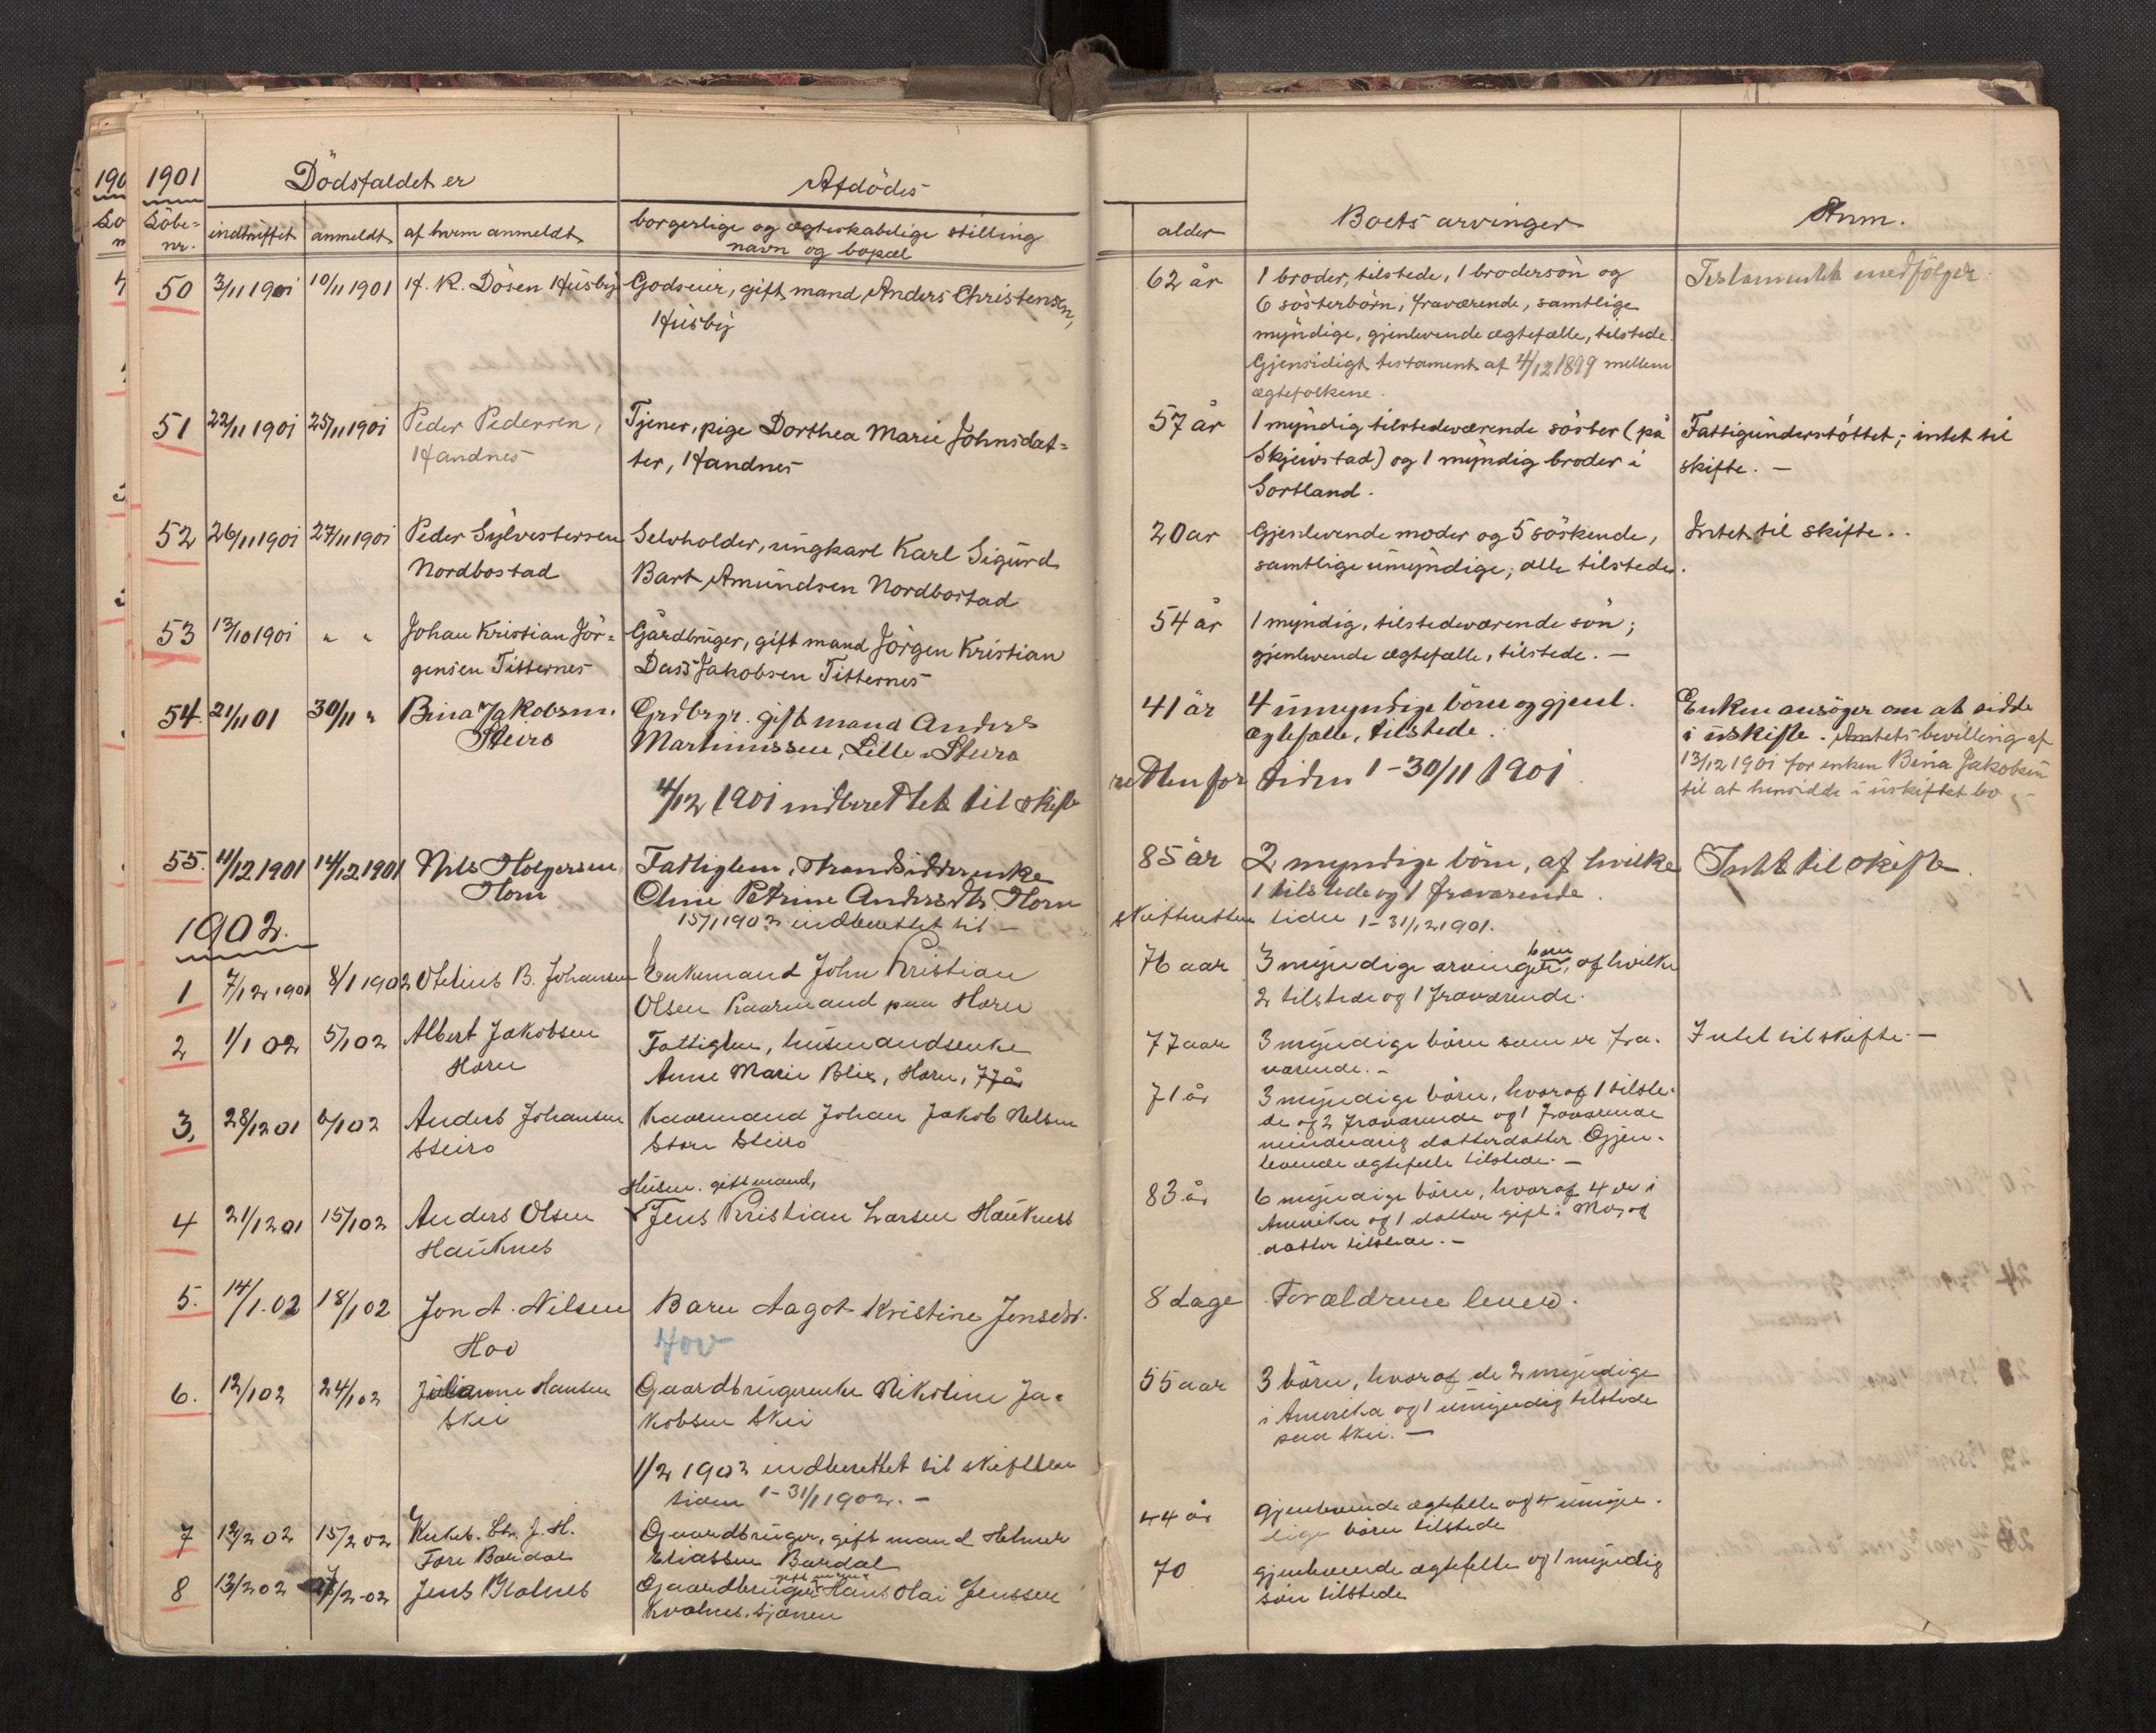 1901
Dödsfaldet er
Afdödes
Löbe=
nr.
indtruffet
anmeldt
af hvem anmeldt
borgerlige og ægteskabelige stilling
navn og bopæl
alder
Boets arvinger
Anm.
50 3/11 1901 10/11 1901 H. K. Dösen Husby Godseier, gift mand, Anders Christensen,
Husby
62 år 1 broder, tilstede, 1 brodersön og
6 sösterbörn, fraværende, samtlige
myndige, gjenlevende ægtefælle, tilstede.
Gjensidigt testament af 4/12 1899 mellem
ægtefolkene.
Testamentet medfölger.
51 22/11 1901 25/11 1901 Peder Pedersen,
Handnes
Tjener, pige Dorthea Marie Johnsdat=
ter, Handnes
57 år 1 myndig tilstedeværende söster (på
Skjeivstad) og 1 myndig broder i
Sortland.
Fattigunderstöttet; intet til
skifte. —
52 26/11 1901 27/11 1901 Peder Sylvestersen
Nordbostad
Selvholder, ungkarl Karl Sigurd
Bart Amundsen Nordbostad
20 ar Gjenlevende moder og 5 söskende,
samtlige umyndige; alle tilstede.
Intet til skifte..
53 13/10 1901 " " Johan Kristian Jör=
gensen Titternes
Gårdbruger, gift mand Jörgen Kristian
Dass Jakobsen Titternes
54 år 1 myndig, tilstedeværende sön;
gjenlevende ægtefælle, tilstede. —
54. 21/11 01 30/11 " Bina Jakobsen.
Steiro
Grdbrgr. gift mand Anders
Martinussen, Lille Steiro
41 år 4 umyndige börn og gjenl.
ægtefælle, tilstede.
Enken ansöger om at sidde
i uskifte. Amtets bevilling af
13/12 1901 for enken Bina Jakobsen
til at hensidde i uskiftet bo. —
4/12 1901 indberettet til skifte
retten for tiden 1-30/11 1901
55. 11/12 1901 14/12 1901 Nils Holgersen,
Horn
Fattiglem, Strandsidderenke
Oline Petrine Andersdtr Horn
85 år 2 myndige börn, af hvilke
1 tilstede og 1 fraværende.
Intet til skifte.
15/1 1902 indberettet til —
skifteretten tiden 1-31/12 1901.
1902.
1 7/12 1901 8/1 1902 Othelius B. Johansen Enkemand John Kristian
Olsen Kaarmand paa Horn
76 aar 3 myndige arvinger, börn, af hvilke
2 tilstede og 1 fraværende.
2 1/1 02 5/1 02 Albert Jakobsen
Horn
Fattiglem, husmandsenke
Anne Marie Blix, Horn, 77 år
77 aar 3 myndige börn som er fra-
værende. —
Intet til skifte. —
3, 28/12 01 6/1 02 Anders Johansen
Steiro
Kaarmand Johan Jakob Nelsen
Store Steiro
71 år 3 myndige börn, hvoraf 1 tilste-
de og 2 fraværende og 1 fraværende
mindreårig datterdatter. Gjen-
levende ægtefælle tilstede. —
4 21/12 01 15/1 02 Anders Olsen
Hauknes
Husm. gift mand,
Jens Kristian Larsen Hauknes
83 år 6 myndige börn, hvoraf 4 er i
Amerika og 1 datter gift i Mo, og
datter tilstede. —
5. 14/1.02 18/1 02 Jon A. Nilsen
Hov
Barn Aagot Kristine Jensdtr.
Hov
8 dage Forældrene lever.
6. 12/1 02 24/1 02 Julianne Hansen
Skei
Gaardbrugerenke Nikoline Ja-
kobsen Skei
55 aar 3 börn, hvoraf de 2 myndige
i Amerika og 1 umyndig tilstede
paa Skei. —
1/2 1902 indberettet til skifteretten
tiden 1-31/1 1902. —
7 12/2 02 15/2 02 J. H.
Fore Bardal
Gaardbruger, gift mand Helmer
Eliassen Bardal
44 år gjenlevende ægtefelle og 4 umyn-
dige börn tilstede
8 13/2 02 /2 -02 Jens Kvalnes
Gaardbruger gift mand Hans Olai Jenssen
Kvalnes. Sjönen
70 gjenlevende ægtefelle og 1 myndig
sön tilstede